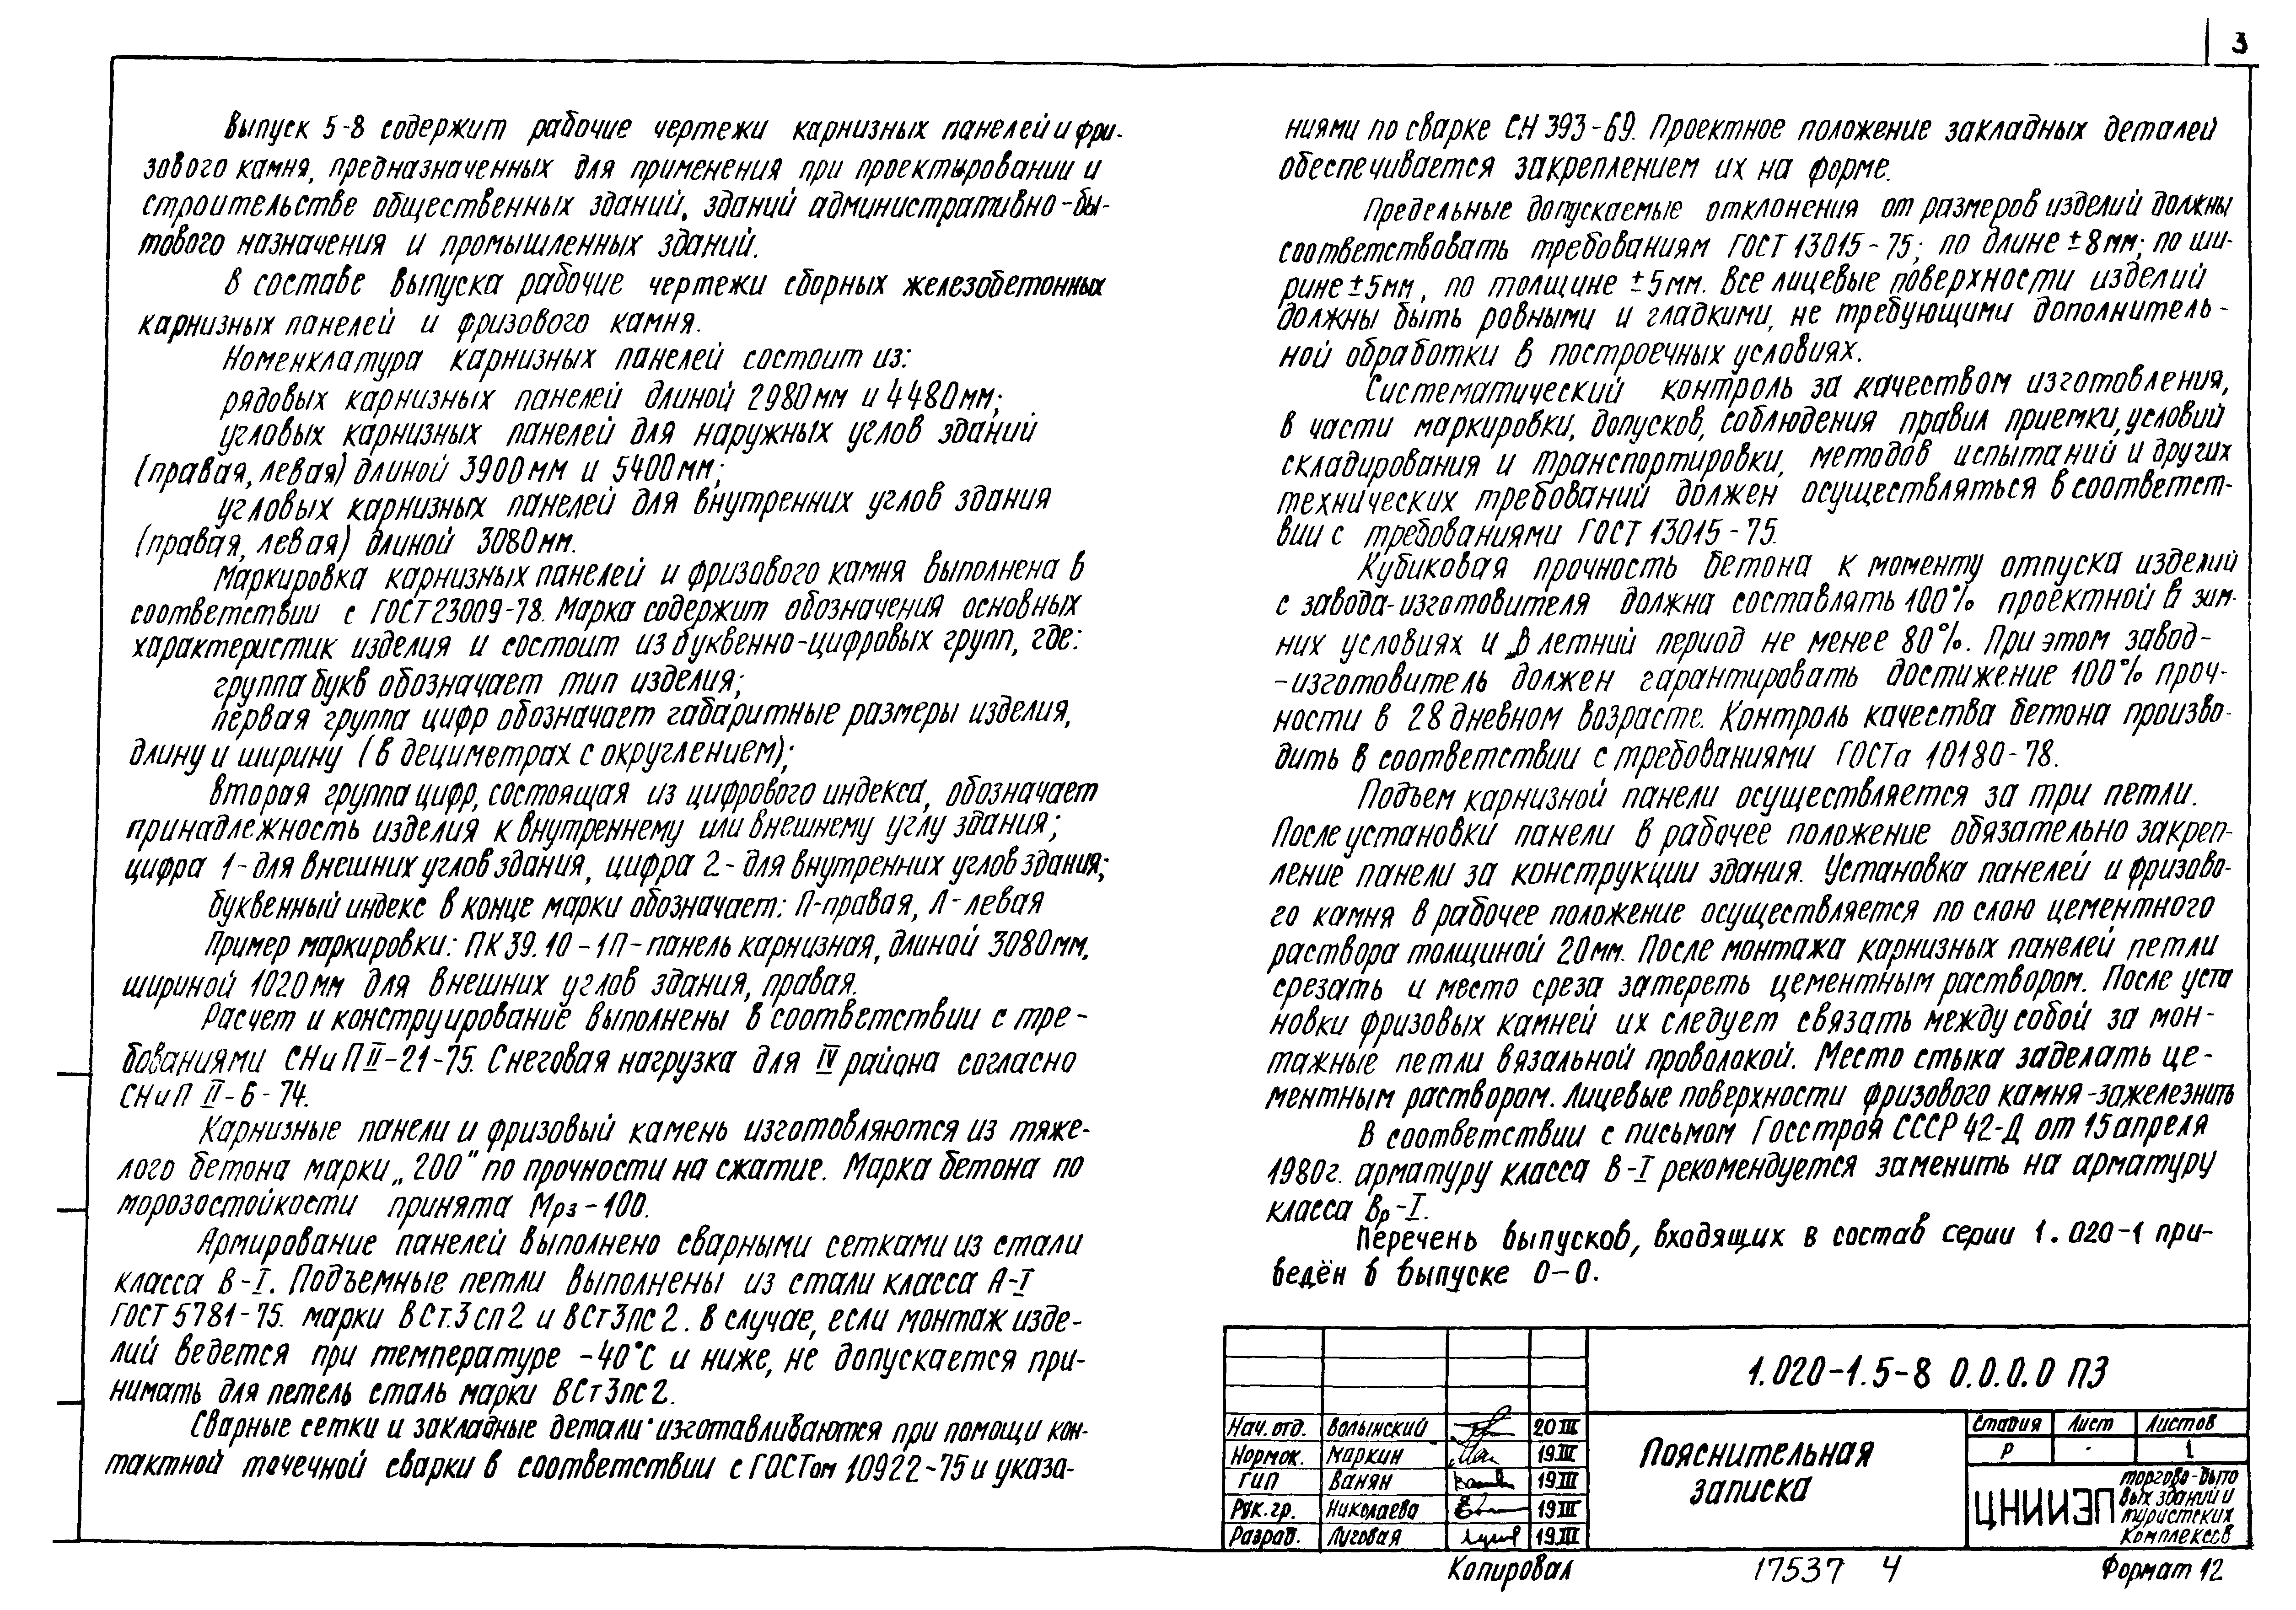 3
Выпуск 5-8 содержит рабочие чертежи карнизных панелей и фри-
зового камня, предназначенных для применения при проектировании и
строительстве общественных зданий, зданий административно-бы-
тового назначения и промышленных зданий.
В составе выпуска рабочие чертежи сборных железобетонных
карнизных панелей и фризового камня.
Номенклатура карнизных панелей состоит из:
рядовых карнизных панелей длиной 2980мм и 4480мм;
угловых карнизных панелей для наружных углов зданий
(правая, левая) длиной 3900мм и 5400мм;
угловых карнизных панелей для внутренних углов здания
(правая, левая) длиной 3080мм.
Маркировка карнизных панелей и фризового камня выполнена в
соответствии с ГОСТ 23009-78. Марка содержит обозначения основных
характеристик изделия и состоит из буквенно-цифровых групп, где:
группа букв обозначает тип изделия;
первая группа цифр обозначает габаритные размеры изделия,
длину и ширину (в дециметрах с округлением);
Вторая группа цифр, состоящая из цифрового индекса, обозначает
принадлежность изделия к внутреннему или внешнему углу здания;
цифра 1- для внешних углов здания, цифра 2- для внутренних углов здания;
буквенный индекс в конце марки обозначает: П-правая, Л-левая
Пример маркировки: ПК 39.10-1П- панель карнизная, длиной 3080мм,
шириной 1020мм для внешних углов здания, правая.
Расчет и конструирование выполнены в соответствии с тре-
бованиями СНиП II-21-75. Снеговая нагрузка для IV района согласно
СНиП II-6-74.
Карнизные панели и фризовый камень изготовляются из тяже-
лого бетона марки „200" по прочности на сжатие. Марка бетона по
морозостойкости принята Мрз-100.
Армирование панелей выполнено сварными сетками из стали
класса В-I. Подъемные петли выполнены из стали класса А-I
ГОСТ 5781-75. марки ВСт.3сп2 и ВСт3пс2. В случае, если монтаж изде-
лий ведется при температуре -40°С и ниже, не допускается при-
нимать для петель сталь марки ВСт3пс2.
Сварные сетки и закладные детали изготавливаются при помощи кон-
тактной точечной сварки в соответствии с ГОСТом 10922-75 и указа-
ниями по сварке СН 393-69. Проектное положение закладных деталей
обеспечивается закреплением их на форме.
Предельные допускаемые отклонения от размеров изделий должны
соответствовать требованиям ГОСТ 13015-75; по длине ±8мм; по ши-
рине ±5мм, по толщине ±5мм. Все лицевые поверхности изделий
должны быть ровными и гладкими, не требующими дополнитель-
ной обработки в построечных условиях.
Систематический контроль за качеством изготовления,
в части маркировки, допусков, соблюдения правил приемки, условий
складирования и транспортировки, методов испытаний и других
технических требований должен осуществляться в соответст-
вии с требованиями ГОСТ 13015-75.
Кубиковая прочность бетона к моменту отпуска изделий
с завода-изготовителя должна составлять 100% проектной в зим-
них условиях и в летний период не менее 80%. При этом завод-
-изготовитель должен гарантировать достижение 100% проч-
ности в 28 дневном возрасте. Контроль качества бетона произво-
дить в соответствии с требованиями ГОСТа 10180-78.
Подъем карнизной панели осуществляется за три петли.
После установки панели в рабочее положение обязательно закреп-
ление панели за конструкции здания. Установка панелей и фризово-
го камня в рабочее положение осуществляется по слою цементного
раствора толщиной 20мм. После монтажа карнизных панелей петли
срезать и место среза затереть цементным раствором. После уста
новки фризовых камней их следует связать между собой за мон-
тажные петли вязальной проволокой. Место стыка заделать це-
ментным раствором. Лицевые поверхности фризового камня-зажелезнить
В соответствии с письмом Госстроя СССР 42-Д от 15 апреля
1980г. арматуру класса В-I рекомендуется заменить на арматуру
класса Вр-I.
Перечень выпусков, входящих в состав серии 1.020-1 при-
ведён в выпуске 0-0.
1.020-1.5-8 0.0.0.0 ПЗ
Нач. отд. Волынский 20 III
Нормок. Маркин 19 III
ГИП Ванян 19 III
Рук. гр. Николаева 19 III
Разраб. Луговая 19 III
Пояснительная
записка
Стадия Лист Листов
Р 1
ЦНИИЭП
торгово-быто
вых зданий и
туристских
комплексов
Копировал 17537 4 Формат 12